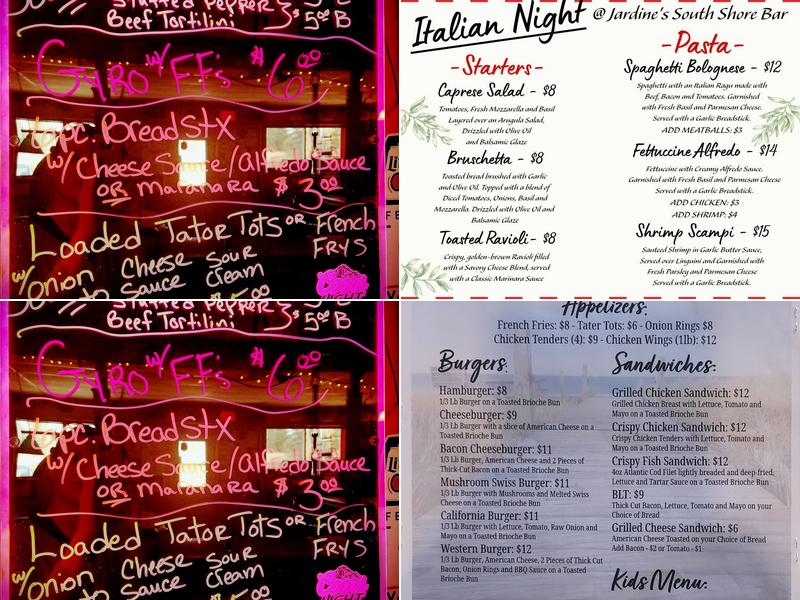 Stuffed Pepper 3$ 5.00 B
Beef Tortilini
Gyro w/ FFs $6.00
BreadStx
w/ Cheese Sauce/Alfredo Sauce
OR Maranara $3.00
Loaded Tator Tots OR French FRYS
w/onion Cheese Sour
Sauce Cream
Italian Night @ Jardine's South Shore Bar
-Starters-
Caprese Salad - $8
Tomatoes, Fresh Mozzarella and Basil
Layered over an Arugula Salad,
Drizzled with Olive Oil
and Balsamic Glaze
Bruschetta - $8
Toasted bread brushed with Garlic
and Olive Oil. Topped with a blend of
Diced Tomatoes, Onions, Basil and
Mozzarella. Drizzled with Olive Oil and
Balsamic Glaze
Toasted Ravioli- $8
Crispy, golden-brown Ravioli filled
with a Savory Cheese Blend, served
with a Classic Marinara Sauce
-Pasta-
Spaghetti Bolognese - $12
Spaghetti with an Italian Ragu made with
Beef, Bacon and Tomatoes. Garnished
with Fresh Basil and Parmesan Cheese.
Served with a Garlic Breadstick.
ADD MEATBALLS: $3
Fettuccine Alfredo - $14
Fettuccine with Creamy Alfredo Sauce.
Garnished with Fresh Basil and Parmesan Cheese
Served with a Garlic Breadstick.
ADD CHICKEN: $3
ADD SHRIMP: $4
Shrimp Scampi - $15
Sauteed Shrimp in Garlic Butter Sauce,
Served over Linguini and Garnished with
Fresh Parsley and Parmesan Cheese
Served with a Garlic Breadstick.
Stuffed Pepper 3$ 5.00 B
Beef Tortilini
Gyro w/ FFs $6.00
BreadStx
w/ Cheese Sauce/Alfredo Sauce
OR Maranara $3.00
Loaded Tator Tots OR French FRYS
w/onion Cheese Sour
Sauce Cream
Appetizers:
French Fries: $8 - Tater Tots: $6 - Onion Rings $8
Chicken Tenders (4): $9 - Chicken Wings (1lb): $12
Burgers:
Hamburger: $8
1/3 Lb Burger on a Toasted Brioche Bun
Cheeseburger: $9
1/3 Lb Burger with a slice of American Cheese on a
Toasted Brioche Bun
Bacon Cheeseburger: $11
1/3 Lb Burger, American Cheese and 2 Pieces of
Thick-Cut Bacon on a Toasted Brioche Bun
Mushroom Swiss Burger: $11
1/3 Lb Burger with Mushrooms and Melted Swiss
Cheese on a Toasted Brioche Bun
California Burger: $11
1/3 Lb Burger with Lettuce, Tomato, Raw Onion and
Mayo on a Toasted Brioche Bun
Western Burger: $12
1/3 Lb Burger, American Cheese, 2 Pieces of Thick Cut
Bacon, Onion Rings and BBQ Sauce on a Toasted
Brioche Bun
Sandwiches:
Grilled Chicken Sandwich: $12
Grilled Chicken Breast with Lettuce, Tomato and
Mayo on a Toasted Brioche Bun
Crispy Chicken Sandwich: $12
Crispy Chicken Tenders with Lettuce, Tomato and
Mayo on a Toasted Brioche Bun
Crispy Fish Sandwich: $12
4oz Atlantic Cod Filet lightly breaded and deep fried,
Lettuce and Tartar Sauce on a Toasted Brioche Bun
BLT: $9
Thick Cut Bacon, Lettuce, Tomato and Mayo on your
Choice of Bread
Grilled Cheese Sandwich: $6
American Cheese Toasted on your Choice of Bread
Add Bacon - $2 or Tomato - $1
Kids Menu: